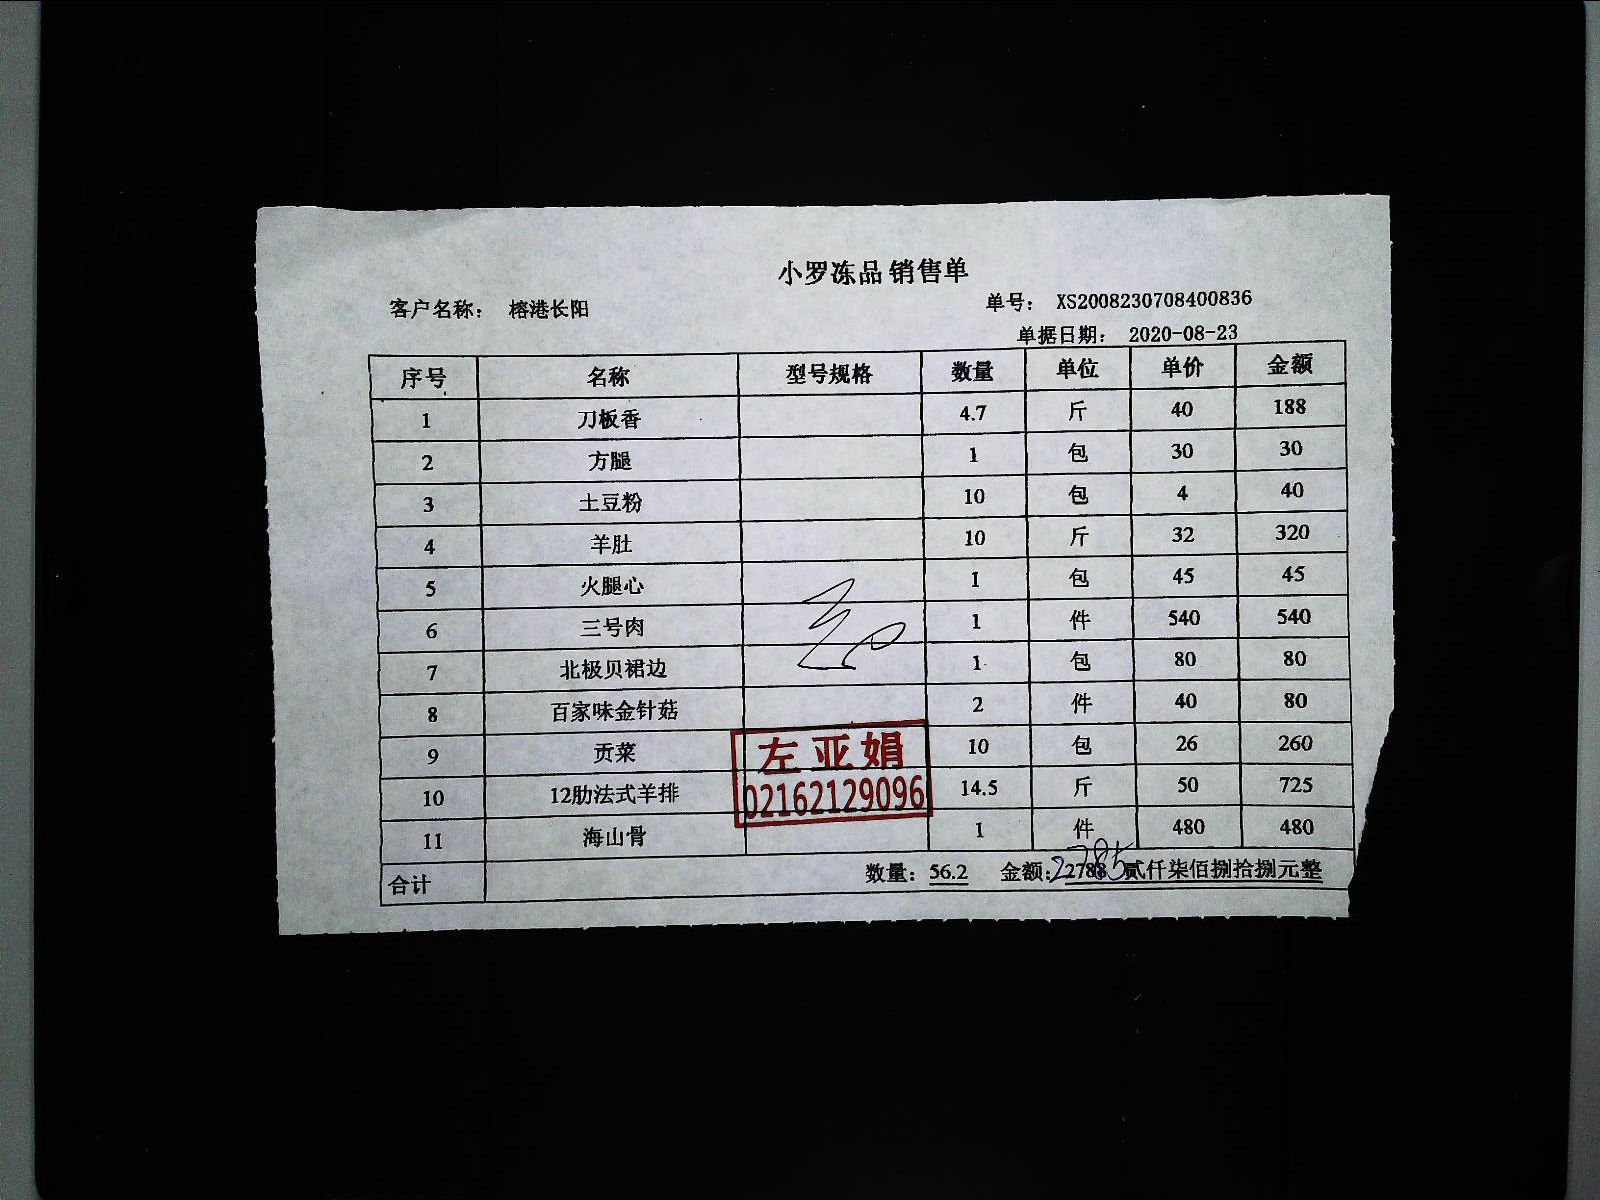 小罗冻品 销售单
客户名称： 榕港长阳 单号： XS2008230708400836
单据日期： 2020-08-23
序号 名称 型号规格 数量 单位 单价 金额
1 刀板香 4.7 斤 40 188
2 方腿 1 包 30 30
3 土豆粉 10 包 4 40
4 羊肚 10 斤 32 320
5 火腿心 1 包 45 45
6 三号肉 1 件 540 540
7 北极贝裙边 1 包 80 80
8 百家味金针菇 2 件 40 80
9 贡菜 10 包 26 260
10 12肋法式羊排 14.5 斤 50 725
11 海山骨 1 件 480 480
左亚娟
02162129096
合计 数量：56.2 金额：2788 贰仟柒佰捌拾捌元整
2785